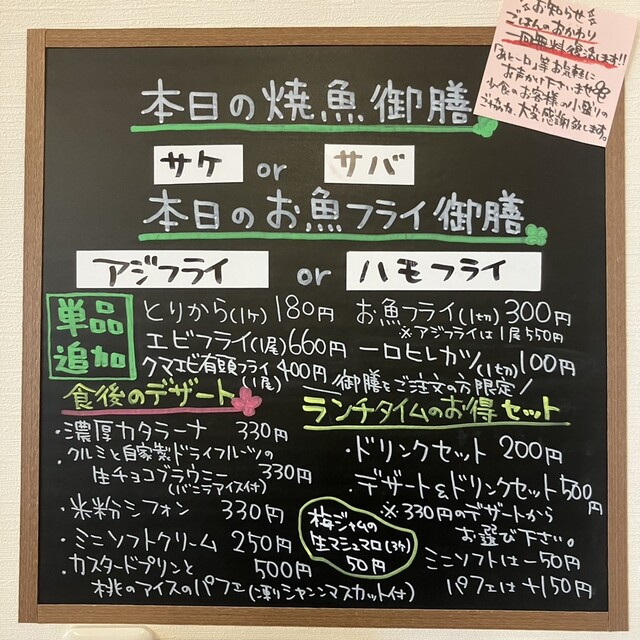 お知らせ
ごはんのおかわり
一回無料復活します!!
「あと一口」等お気軽に
お声かけ下さいませ
少食のお客様の小盛りの
ご協力、大変感謝致します。
本日の焼魚御膳
サケ or サバ
本日のお魚フライ御膳
アジフライ or ハモフライ
単品追加
とりから(1ヶ) 180円
エビフライ(1尾) 660円
クマエビ有頭フライ(1尾) 400円
お魚フライ(1切) 300円
※アジフライは1尾550円
一口ヒレカツ(1切) 100円
御膳をご注文の方限定
食後のデザート
・濃厚カタラーナ 330円
・クルミと自家製ドライフルーツの
生チョコブラウニー 330円
(バニラアイス付)
・米粉シフォン 330円
・ミニソフトクリーム 250円
・カスタードプリンと 500円
桃のアイスのパフェ(凍りシャンンマスカット付)
梅ジャムの
生マシュマロ(3ヶ)
50円
ランチタイムのお得セット
・ドリンクセット 200円
・デザート&ドリンクセット 500円
※330円のデザートから
お選び下さい。
ミニソフトは-50円
パフェは+150円